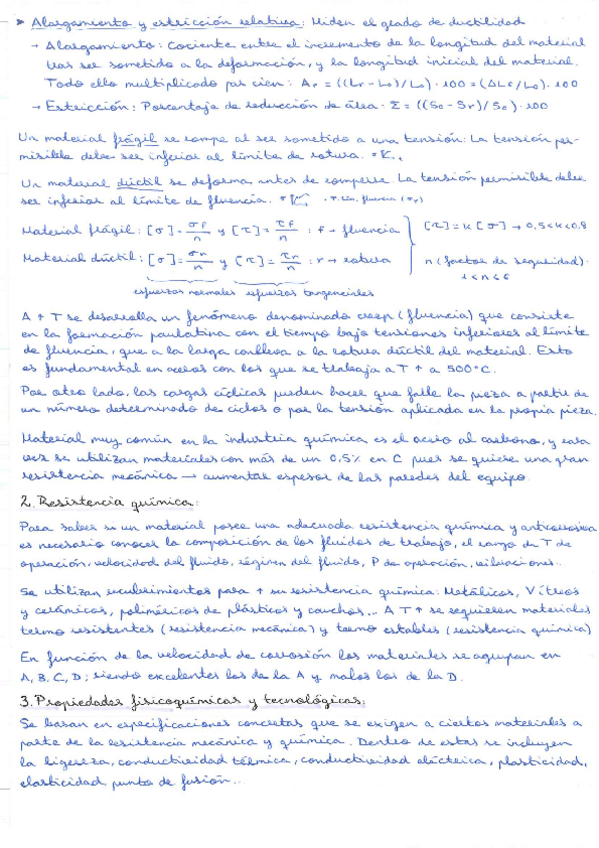 ➤ Alargamiento y estricción relativa: Miden el grado de ductilidad
→ Alargamiento: Cociente entre el incremento de la longitud del material
tras ser sometido a la deformación, y la longitud inicial del material.
Todo ello multiplicado por cien: Ar = ((Lr - Lo)/Lo) · 100 = (ΔLr/Lo) · 100
→ Estricción: Porcentaje de reducción de área · Σ = ((So - Sr)/So) · 100
Un material frágil se rompe al ser sometido a una tensión: La tensión per-
misible debe ser inferior al límite de rotura.
Un material dúctil se deforma antes de romperse. La tensión permisible debe
ser inferior al límite de fluencia.
Material frágil: [σ] = σf/n y [τ] = τf/n : f → fluencia [τ] = K[σ] → 0,5<K<0,8
Material dúctil: [σ] = σr/n y [τ] = τr/n : r → rotura n (factor de seguridad):
1<n<6
esfuerzos normales esfuerzos tangenciales
A ↑ T se desarrolla un fenómeno denominado creep (fluencia) que consiste
en la formación paulatina con el tiempo bajo tensiones inferiores al límite
de fluencia, que a la larga conlleva a la rotura dúctil del material. Esto
es fundamental en aceros con los que se trabaja a T ↑ a 500°C.
Por otro lado, las cargas cíclicas pueden hacer que falle la pieza a partir de
un número determinado de ciclos o por la tensión aplicada en la propia pieza.
Material muy común en la industria química es el acero al carbono, y rara
vez se utilizan materiales con más de un 0,5% en C pues se quiere una gran
resistencia mecánica → aumentar espesor de las paredes del equipo.
2. Resistencia química:
Para saber si un material posee una adecuada resistencia química y anticorrosiva
es necesario conocer la composición de los fluidos de trabajo, el rango de T de
operación, velocidad del fluido, régimen del fluido, P de operación, vibraciones...
Se utilizan recubrimientos para ↑ su resistencia química: Metálicos, Vítreos
y cerámicos, poliméricos de plásticos y cauchos... A T ↑ se requieren materiales
termo resistentes (resistencia mecánica) y termo estables (resistencia química)
En función de la velocidad de corrosión los materiales se agrupan en
A, B, C, D; siendo excelentes los de la A y malos los de la D.
3. Propiedades fisicoquímicas y tecnológicas:
Se basan en especificaciones concretas que se exigen a ciertos materiales a
parte de la resistencia mecánica y química. Dentro de estas se incluyen
la ligereza, conductividad térmica, conductividad eléctrica, plasticidad,
elasticidad punto de fusión...